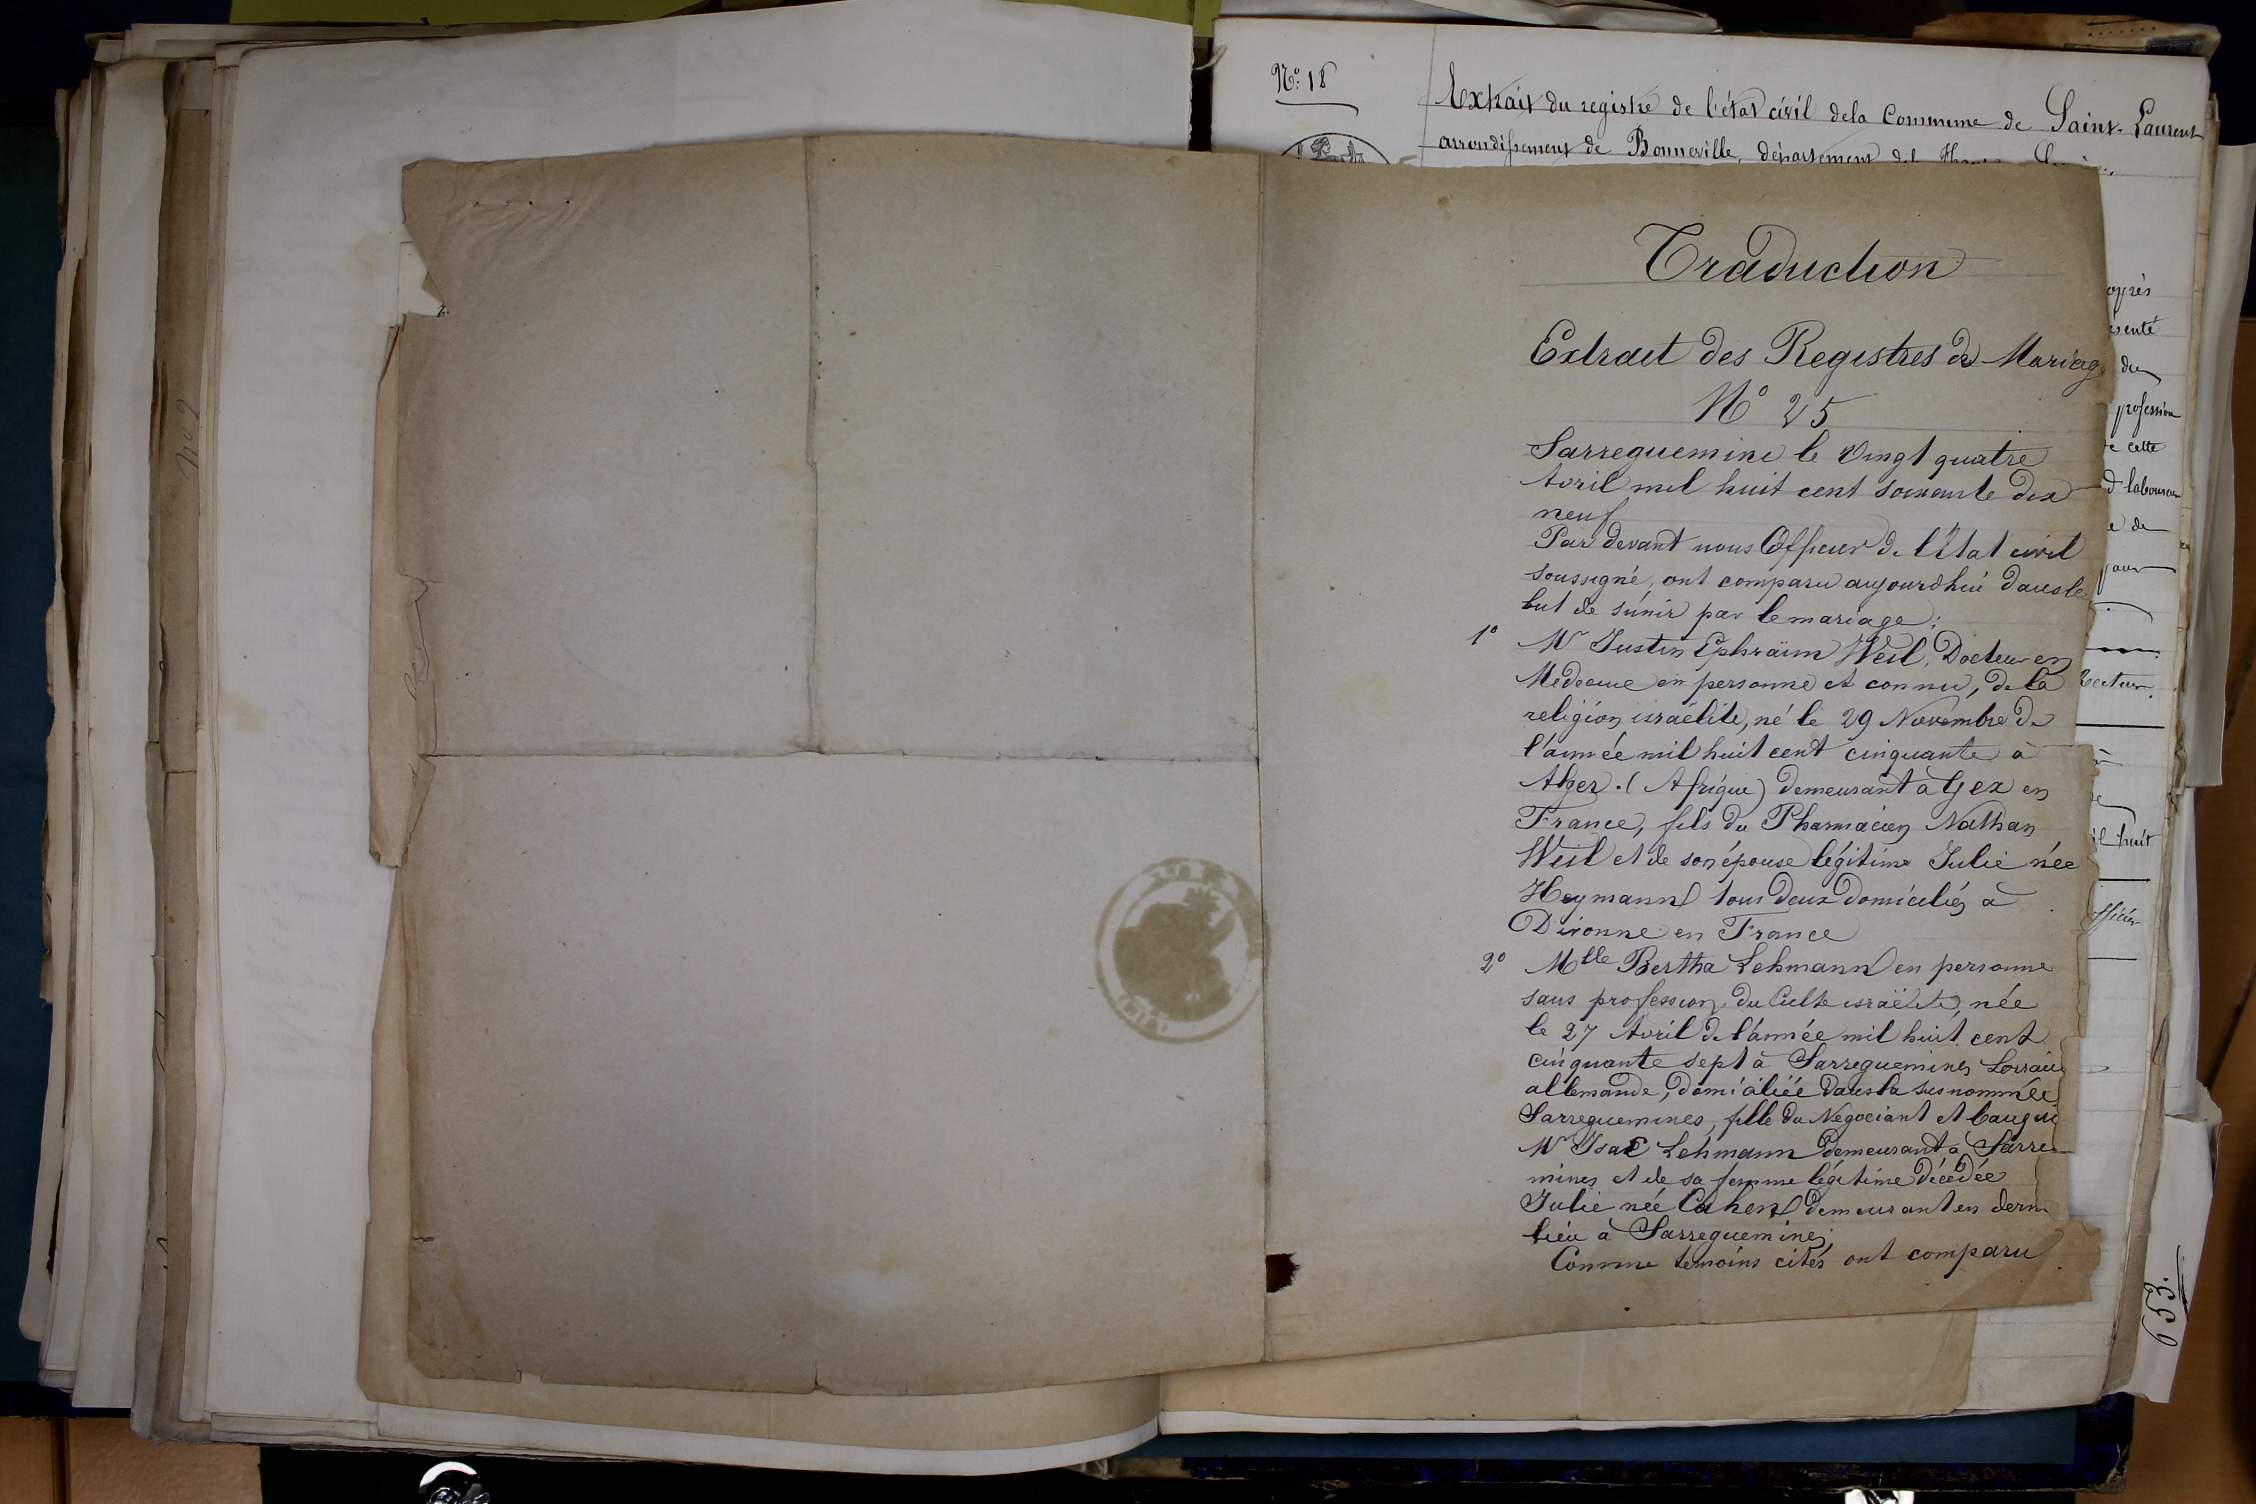 Nº 18
Extrait du registre de l'état civil de la Commune de Saint-Laurent
arrondissement de Bonneville, département de la
Traduction
Extrait des Registres de Mariag
Nº 25
Sarreguemine le Vingt quatre
Avril mil huit cent soixante dix
neuf
Par devant nous Officier de l'État civil
soussigné, ont comparu aujourdhui dans le
but de s'unir par le mariage :
1º Mr Justin Ephraïm Weil, Docteur en
Medecine en personne et connu, de la
religion israélite, né le 29 Novembre de
l'année mil huit cent cinquante à
Alger . (Afrique) demeurant à Gex en
France, fils du Pharmacien Nathan
Weil et de son épouse légitime Julie née
Heymann tous deux domiciliés à
Divonne en France
2º Mlle Bertha Lehmann en personne
sans profession, du Culte israëlite, née
le 27 Avril de l'année mil huit cent
cinquante sept à Sarreguemines Lorrain
allemande, domiciliée dans la sus nommée
Sarreguemines, fille du Négociant et banqui
Mr Isac Lehmann demeurant à Sarre-
mines et de sa femme légitime décédée
Julie née Cahen demeurant en dern
lieu à Sarreguemines.
Comme temoins cités ont comparu
après
ésenté
du
profession
e cette
d laboureur
e de
pour
il huit
officier
653.